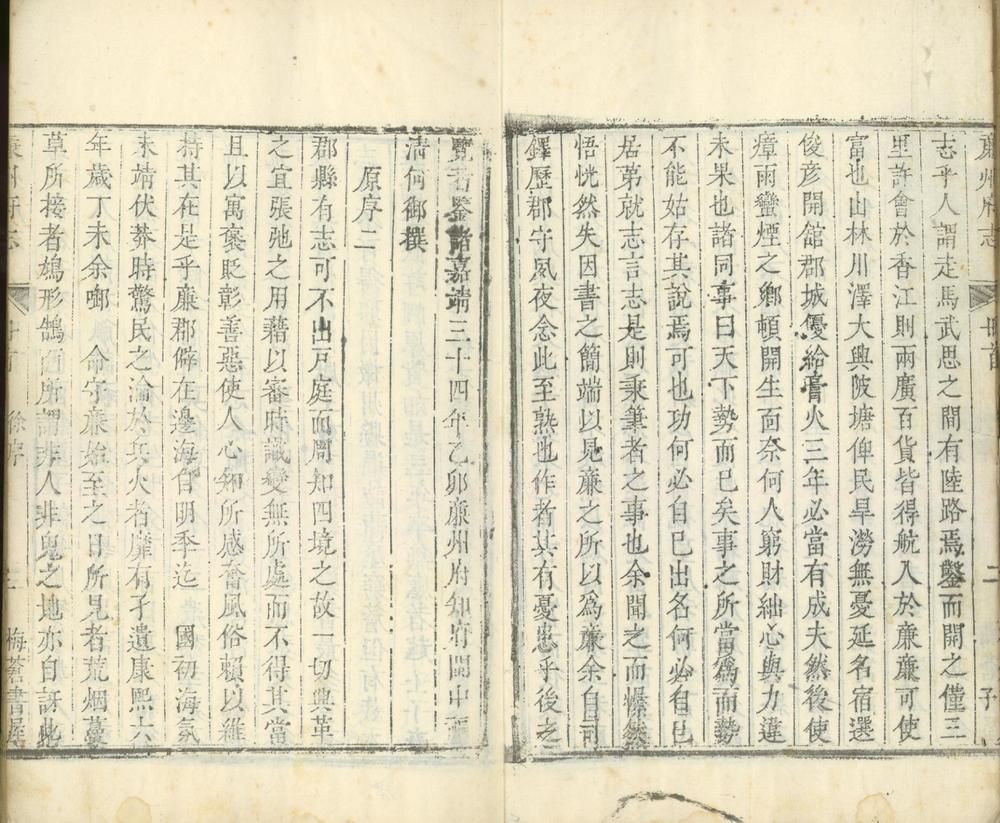 廉州府志 二 子
志乎人謂走馬武思之間有陸路焉鑿而開之僅三
里許會於香江則兩廣百貨皆得航入於廉廉可使
富也山林川澤大興陂塘俾民旱澇無憂延名宿選
俊彥開館郡城優給膏火三年必當有成夫然後使
瘴雨蠻煙之鄉頓開生面奈何人窮財絀心與力違
未果也諸同事曰天下勢而已矣事之所當為而勢
不能姑存其說焉可也功何必自已出名何必自已
居第就志言志是則秉筆者之事也余聞之而憮然
悟恍然失因書之簡端以見廉之所以爲廉余自司
鐸歷郡守夙夜念此至熟也作者其有憂患乎後之
覽者鑒諸嘉靖三十四年乙卯廉州府知府閩中
淸何御撰
原序二
郡縣有志可不出戸庭而周知四境之故一切興革
之宜張弛之用藉以審時識變無所處而不得其當
且以寓褒貶彰善惡使人心知所感奮風俗賴以維
持其在是乎廉郡僻在邊海自明季迄 國初海氛
未靖伏莽時驚民之淪於兵火者靡有孑遺康熙六
年歲丁未余啣 命守廉始至之日所見者荒烟蔓
草所接者鳩形鵠面所謂非人非鬼之地亦自訝此
廉州府志 序 梅菴書屋